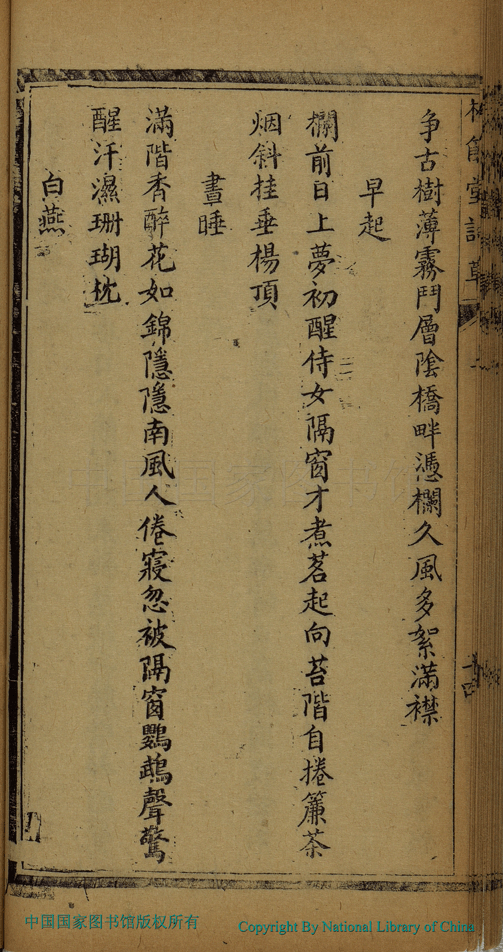 爭古樹薄霧鬥層陰橋畔憑欄久風多絮滿襟
早起
欄前日上夢初醒侍女隔窗才煮茗起向苔階自捲簾茶
烟斜挂垂楊頂
晝睡
滿階香醉花如錦隱隱南風人倦寢忽被隔窗鸚鵡聲驚
醒汗濕珊瑚枕
白燕
十四
中国国家图书馆版权所有
Copyright By National Library of China